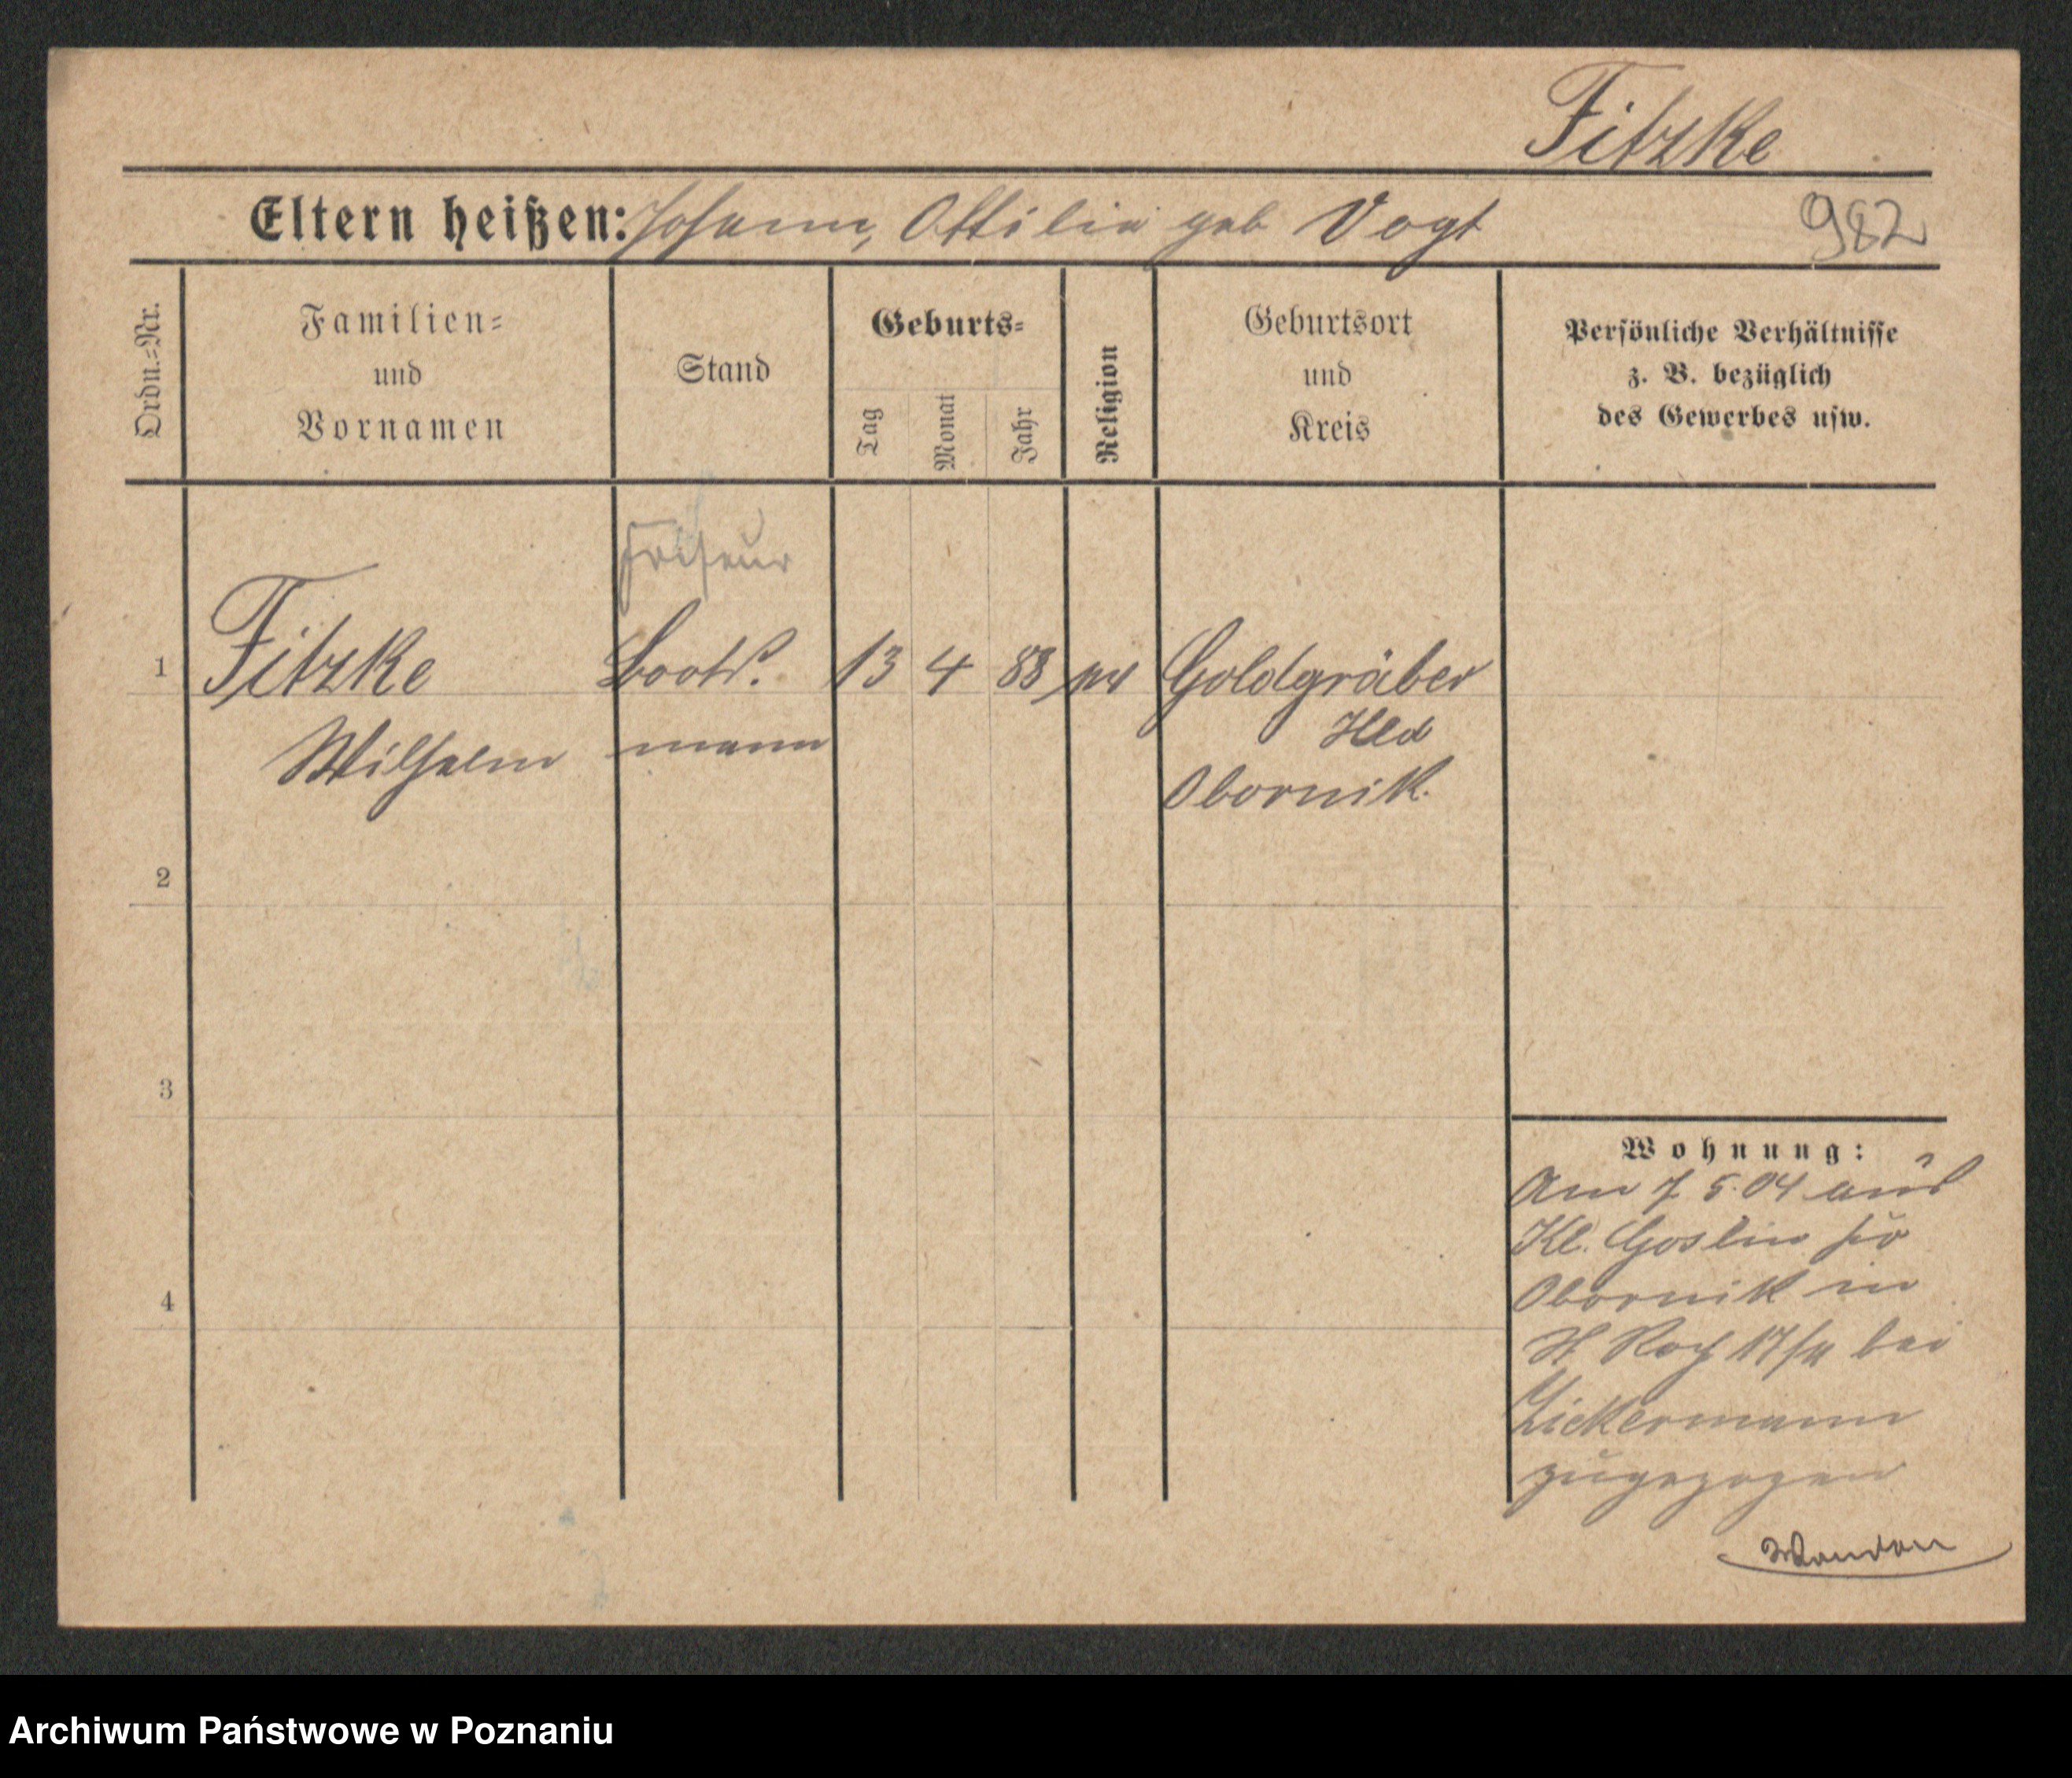 Fitzke
Eltern heißen: Johann, Ottilie geb Vogt
982
Ordn.-Nr.
Familien-
und
Vornamen
Stand
Geburts-
Tag
Monat
Jahr
Religion
Geburtsort
und
Kreis
Persönliche Verhältnisse
z. B. bezüglich
des Gewerbes usw.
Friseur
1 Fitzke Boots- 13 4 88 Goldgräber
Hld
Wilhelm mann
Obornik.
2
3
4
Wohnung:
Am 7. 5. 04 aus
Kl. Goslin
Obornik in
St Roch 17/ bei
Zickermann
zugezogen
Archiwum Państwowe w Poznaniu